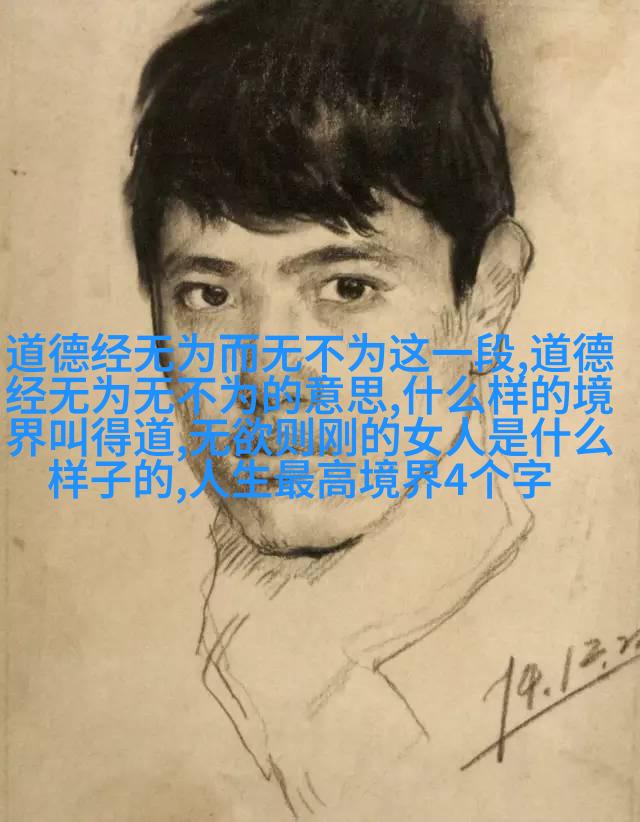 道德经无为而无不为这一段,道德
经无为无不为的意思,什么样的境
界叫得道,无欲则刚的女人是什么
样子的,人生最高境界4个字